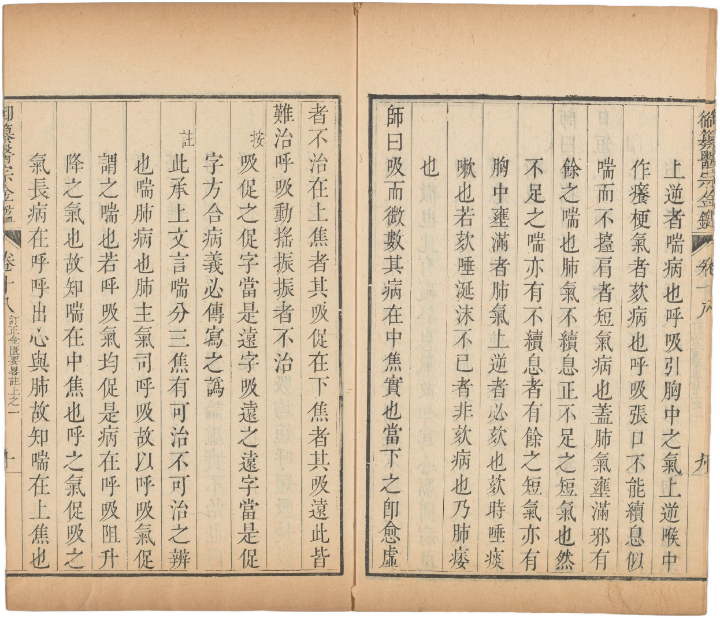 御纂醫宗金鑑 卷十八 九
上逆者喘病也呼吸引胸中之氣上逆喉中
作癢梗氣者欬病也呼吸張口不能續息似
喘而不擡肩者短氣病也蓋肺氣壅滿邪有
餘之喘也肺氣不續息正不足之短氣也然
不足之喘亦有不續息者有餘之短氣亦有
胸中壅滿者肺氣上逆者必欬也欬時唾痰
嗽也若欬唾涎沫不已者非欬病也乃肺痿
也
師曰吸而微數其病在中焦實也當下之卽愈虛
者不治在上焦者其吸促在下焦者其吸遠此皆
難治呼吸動搖振振者不治
按 吸促之促字當是遠字吸遠之遠字當是促
字方合病義必傳寫之譌
註 此承上文言喘分三焦有可治不可治之辨
也喘肺病也肺主氣司呼吸故以呼吸氣促
謂之喘也若呼吸氣均促是病在呼吸阻升
降之氣也故知喘在中焦也呼之氣促吸之
氣長病在呼呼出心與肺故知喘在上焦也
御纂醫宗金鑑 卷十八 訂正金匱要畧註上之一 十